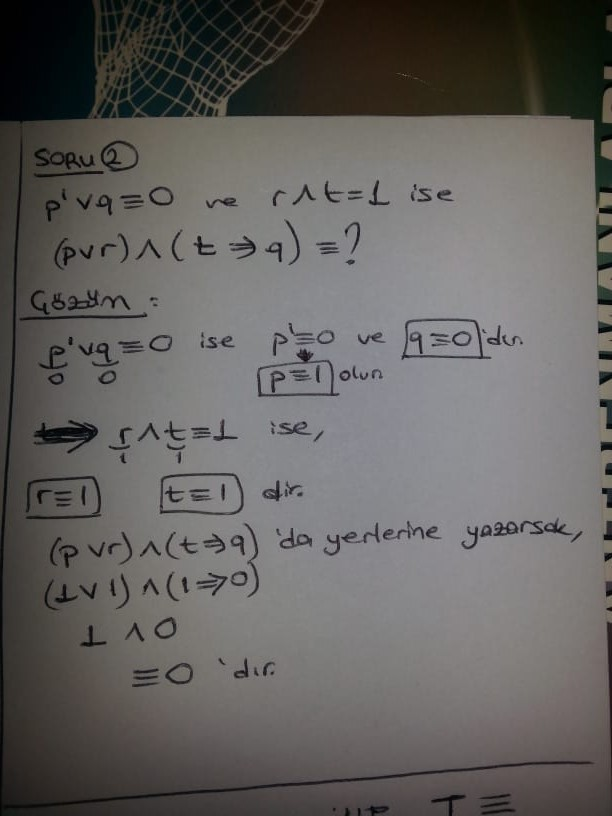 SORU 2
p'vq≡0 ve r∧t≡1 ise
(pvr)∧(t⇒q)≡?
Çözüm:
p'vq≡0 ise p'≡0 ve q≡0 'dır.
0 0 p≡1 olur
r∧t≡1 ise,
1 1
r≡1 t≡1 dir.
(pvr)∧(t⇒q) 'da yerlerine yazarsak,
(1v1)∧(1⇒0)
1∧0
≡0 'dır.